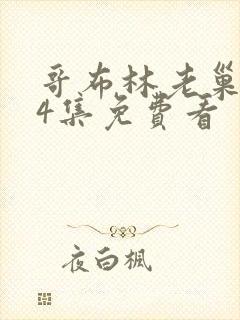 哥布林老巢
4集免费看
夜白楓